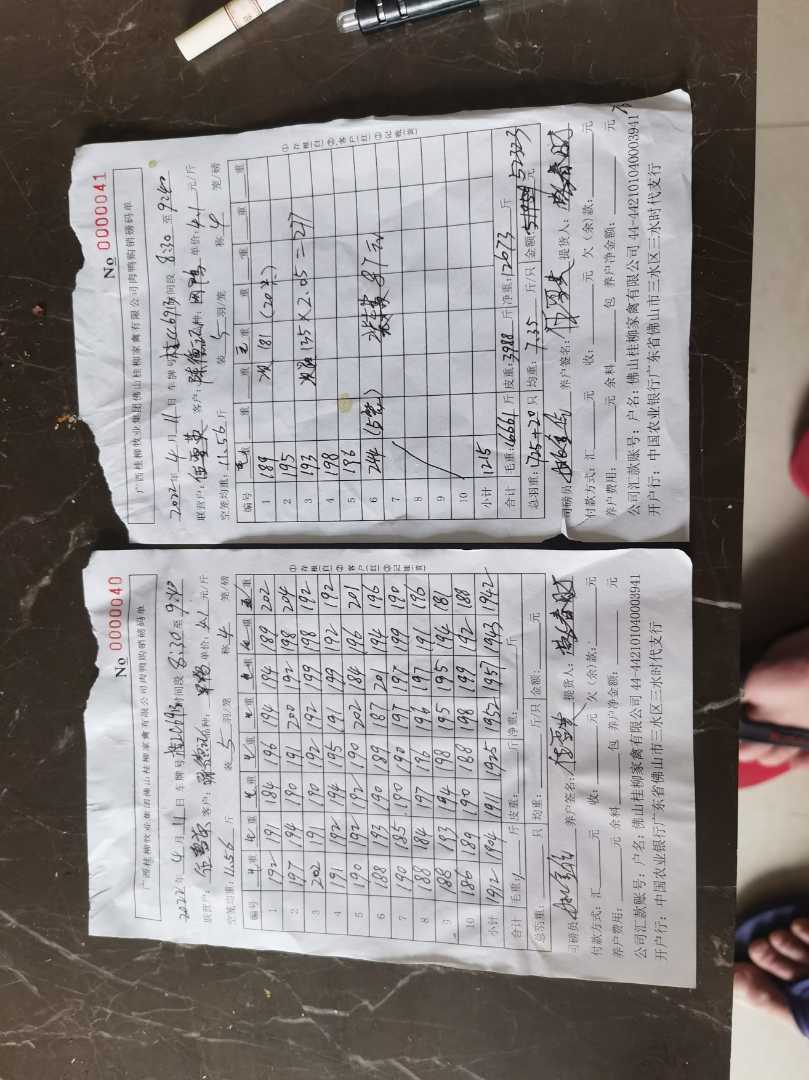 № 0000040
广西桂柳牧业集团佛山桂柳家禽有限公司肉鸭购销磅码单
2022年4月11日 车牌号 时间段 8:30 至 9:40
联营户: 客户: 种: 单价: 4.1 元/斤
空笼均重: 11.56 斤 装 5 羽/笼 称 4 笼/磅
编号 重 重 重 重 重 重 重 重
1 192 191 184 196 194 194 189 202
2 197 194 190 191 200 192 198 204
3 202 191 190 192 192 199 198 192
4 191 192 194 195 191 199 192 192
5 190 192 192 190 202 184 196 201
6 188 193 190 189 187 201 194 196
7 190 185 190 190 197 197 199 190
8 188 184 197 196 196 197 191 196
9 188 193 194 198 195 195 194 181
10 186 189 190 188 198 199 192 188
小计 1912 1904 1911 1925 1952 1957 1943 1942
合计 毛重: 斤 皮重: 斤 净重: 斤
总羽重: 只 均重: 斤/只 金额: 元
①存根白 ②客户红 ③记账黄
司磅员 养户签名: 提货人:
付款方式: 汇 元 收: 元 欠(余)款: 元
养户费用: 元 余料 包 养户净金额: 元
公司汇款账号: 户名: 佛山桂柳家禽有限公司 44-442101040003941
开户行: 中国农业银行广东省佛山市三水区三水时代支行
№ 0000041
广西桂柳牧业集团佛山桂柳家禽有限公司肉鸭购销磅码单
2022年4月11日 车牌号 时间段 8:30 至 9:40
联营户: 客户: 种: 单价: 4.1 元/斤
空笼均重: 11.56 斤 装 5 羽/笼 称 4 笼/磅
编号 重 重 重 重 重
1 189 次 181 (20只)
2 195
3 193 135×2.05=277
4 198
5 196
6 244 (5笼) 87元
7
8
9
10
小计 1215
合计 毛重: 16661 斤 皮重: 3988 斤 净重: 12673 斤
总羽重: 1725+20 只 均重: 7.35 斤/只 金额: 52323 元
①存根白 ②客户红 ③记账黄
司磅员 养户签名: 提货人:
付款方式: 汇 元 收: 元 欠(余)款: 元
养户费用: 元 余料 包 养户净金额: 元
公司汇款账号: 户名: 佛山桂柳家禽有限公司 44-442101040003941
开户行: 中国农业银行广东省佛山市三水区三水时代支行